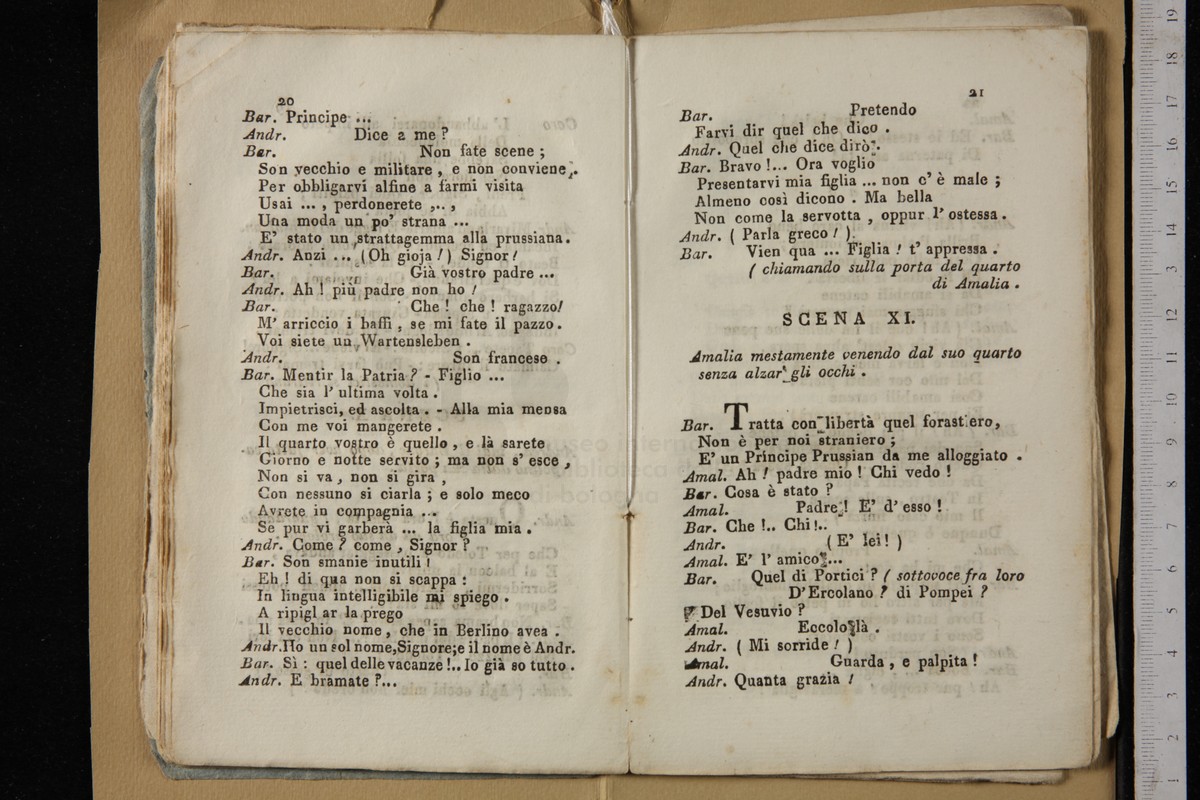 20
Bar. Principe ...
Andr. Dice a me ?
Bar. Non fate scene ;
Son vecchio e militare , e non conviene .
Per obbligarvi alfine a farmi visita
Usai ... , perdonerete ,.. ,
Una moda un po' strana ...
E' stato un strattagemma alla prussiana .
Andr. Anzi ... ( Oh gioja ! ) Signor !
Bar. Già vostro padre ...
Andr. Ah ! più padre non ho !
Bar. Che ! che ! ragazzo !
M' arriccio i baffi , se mi fate il pazzo .
Voi siete un Wartensleben .
Andr. Son francese .
Bar. Mentir la Patria ? - Figlio ...
Che sia l' ultima volta .
Impietrisci, ed ascolta . - Alla mia mensa
Con me voi mangerete .
Il quarto vostro è quello , e là sarete
Giorno e notte servito ; ma non s' esce ,
Non si va , non si gira ,
Con nessuno si ciarla ; e solo meco
Avrete in compagnia ...
Se pur vi garberà ... la figlia mia .
Andr. Come ? come , Signor ? ..
Bar. Son smanie inutili !
Eh ! di qua non si scappa :
In lingua intelligibile mi spiego .
A ripigl ar la prego
Il vecchio nome , che in Berlino avea .
Andr. Ho un sol nome, Signore; e il nome è Andr.
Bar. Sì : quel delle vacanze !.. Io già so tutto .
Andr. E bramate ?...
21
Bar. Pretendo
Farvi dir quel che dico .
Andr. Quel che dice dirò .
Bar. Bravo !... Ora voglio
Presentarvi mia figlia ... non c' è male ;
Almeno così dicono . Ma bella
Non come la servotta , oppur l' ostessa .
Andr. ( Parla greco ! )
Bar. Vien qua ... Figlia ! t' appressa .
( chiamando sulla porta del quarto
di Amalia .
SCENA XI.
Amalia mestamente venendo dal suo quarto
senza alzar gli occhi .
Bar. Tratta con libertà quel forastiero,
Non è per noi straniero ;
E' un Principe Prussian da me alloggiato .
Amal. Ah ! padre mio ! Chi vedo !
Bar. Cosa è stato ?
Amal. Padre ! E' d' esso !
Bar. Che !.. Chi !..
Andr. ( E' lei ! )
Amal. E' l' amico ...
Bar. Quel di Portici ? ( sottovoce fra loro
D' Ercolano ? di Pompei ?
Del Vesuvio ?
Amal. Eccolo là .
Andr. ( Mi sorride ! )
Amal. Guarda , e palpita !
Andr. Quanta grazia !